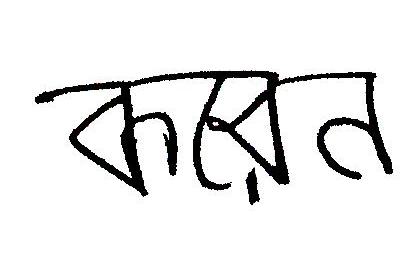 করেন